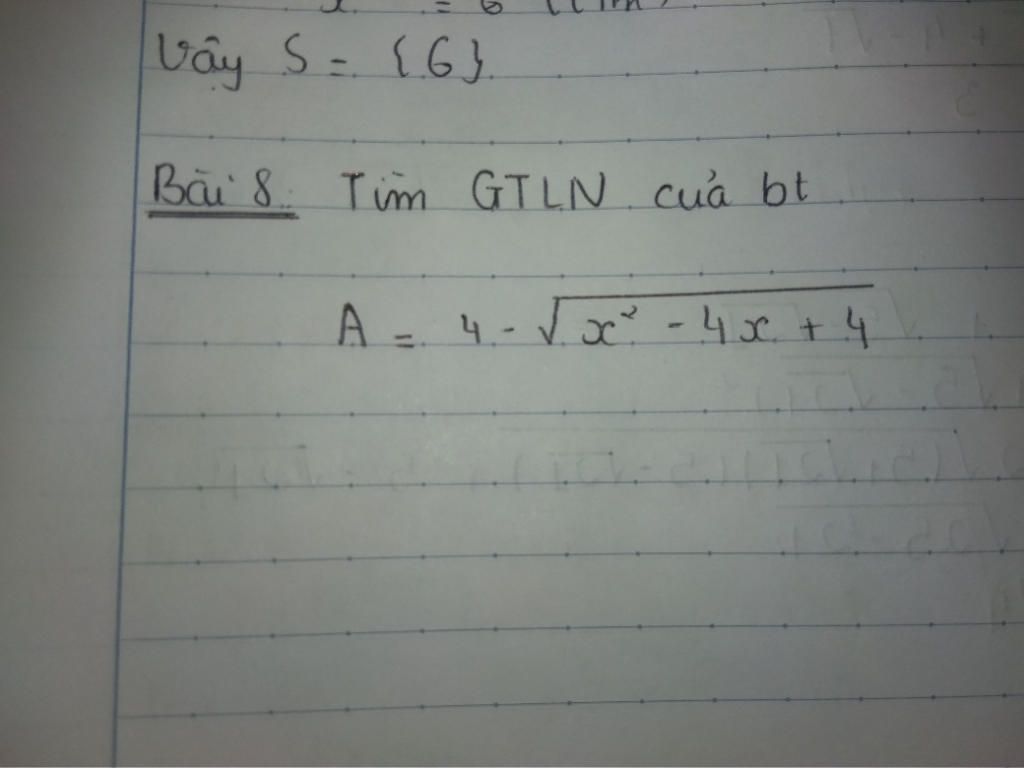 Vậy S = {6}
Bài 8. Tìm GTLN của bt
A = 4 - √(x² - 4x + 4)